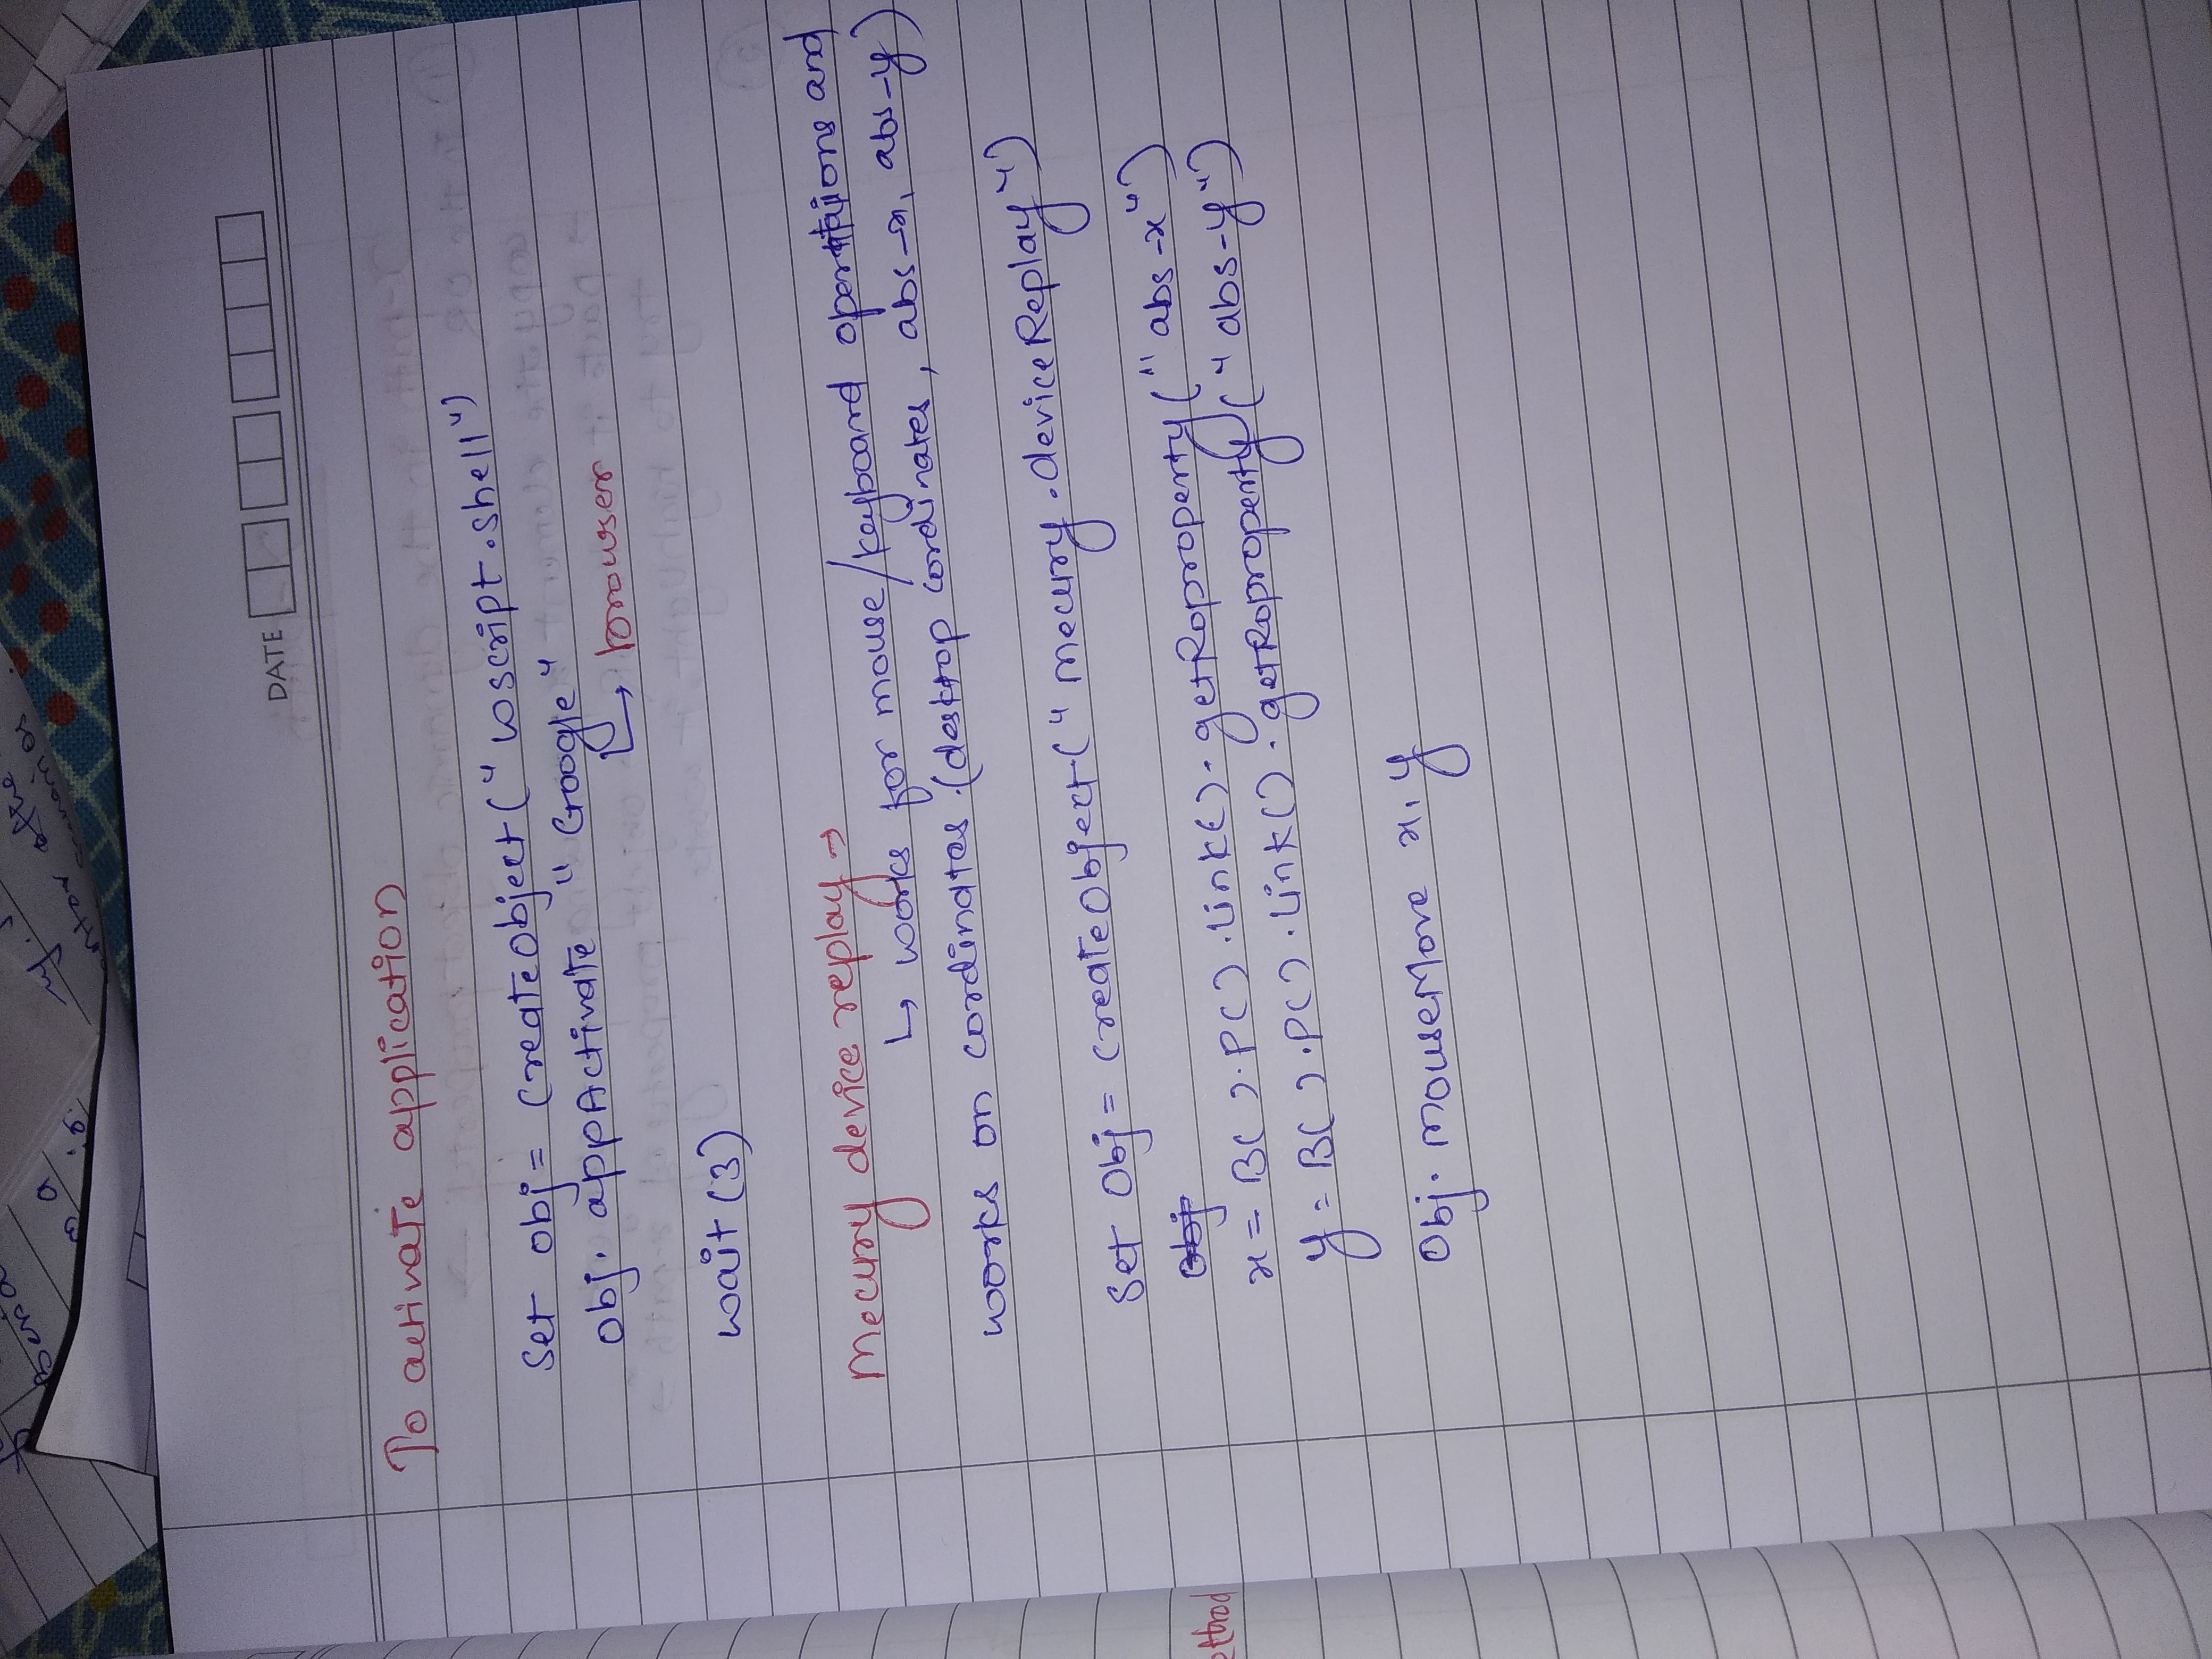 DATE
To activate application
Set obj = CreateObject("wscript.shell")
obj. appActivate "Google"
↳ browser
wait (3)
Mecurry device replay →
↳ works for mouse/keyboard opertions and
works on cordinates.(desktop cordinates, abs-x, abs-y)
Set obj = createObject("mecurry.deviceReplay")
obj
x = B( ).P( ).Link( ).getRoproperty("abs-x")
y = B( ).P( ).Link( ).getRoproperty("abs-y")
obj. mouseMove x,y
ethod